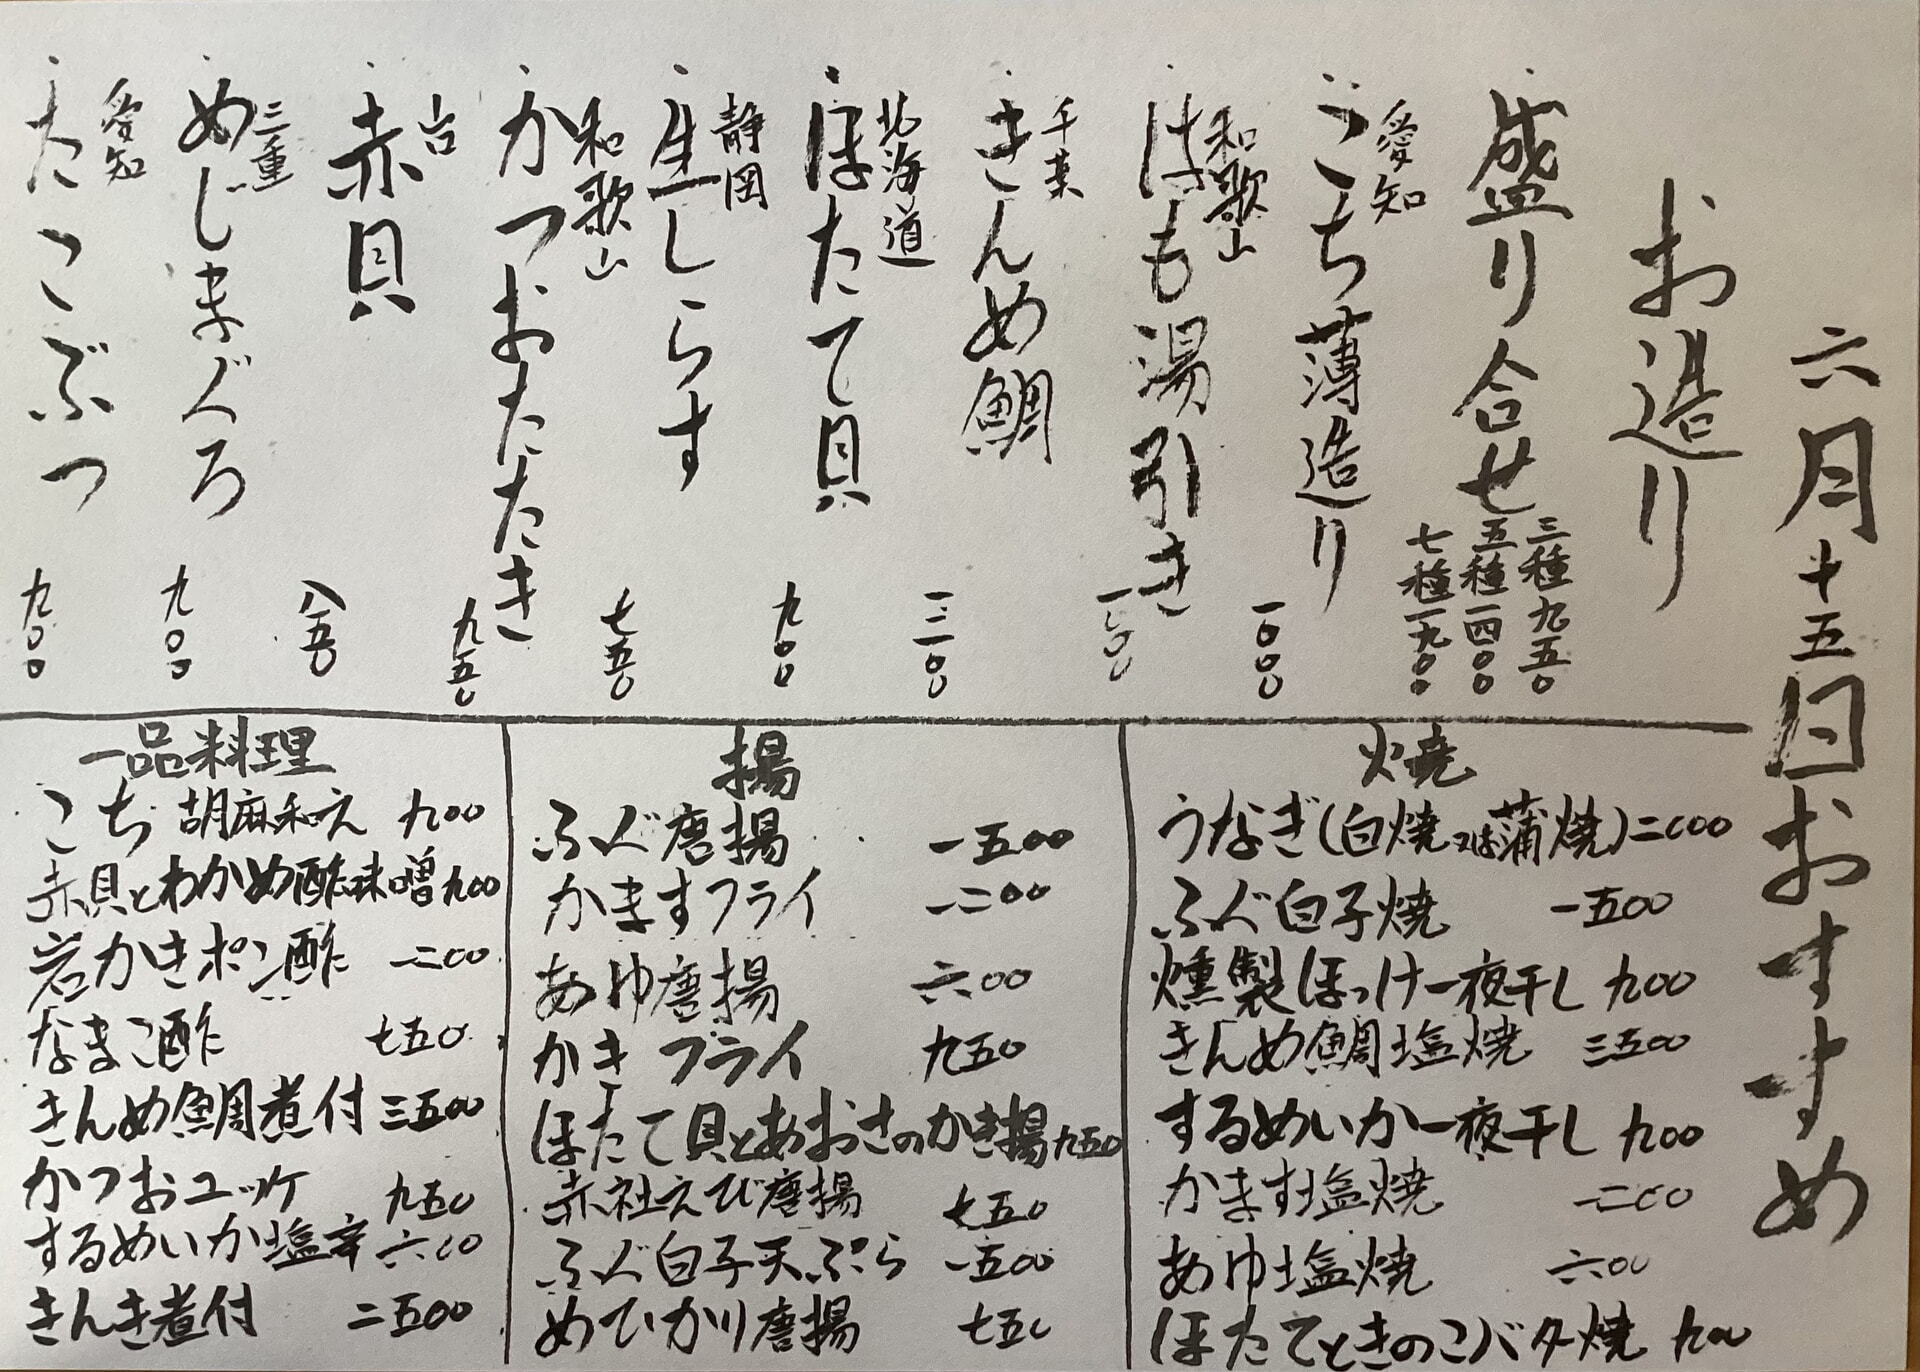 六月十五日おすすめ
お造り
盛り合せ
三種九五〇
五種一四〇〇
七種一九〇〇
愛知
こち薄造り 一〇〇〇
和歌山
はも湯引き
千葉
きんめ鯛 一三〇〇
北海道
ほたて貝 九〇〇
静岡
生しらす 七五〇
和歌山
かつおたたき 九五〇
赤貝 八五〇
三重
めじまぐろ 九〇〇
愛知
たこぶつ 九〇〇
焼
うなぎ(白焼又は蒲焼)二〇〇〇
ふぐ白子焼 一五〇〇
燻製ほっけ一夜干し 九〇〇
きんめ鯛塩焼 三五〇〇
するめいか一夜干し 九〇〇
かます塩焼 一二〇〇
あゆ塩焼 六〇〇
ほたてときのこバター焼 九〇〇
揚
ふぐ唐揚 一五〇〇
かますフライ 一二〇〇
あゆ唐揚 六〇〇
かきフライ 九五〇
ほたて貝とあおさのかき揚 九五〇
赤社えび唐揚 七五〇
ふぐ白子天ぷら 一五〇〇
めひかり唐揚 七五〇
一品料理
こち 胡麻和え 九〇〇
赤貝とわかめ酢味噌 九〇〇
岩かきポン酢 一二〇〇
なまこ酢 七五〇
きんめ鯛煮付 三五〇〇
かつおユッケ 九五〇
するめいか塩辛 六〇〇
きんき煮付 二五〇〇